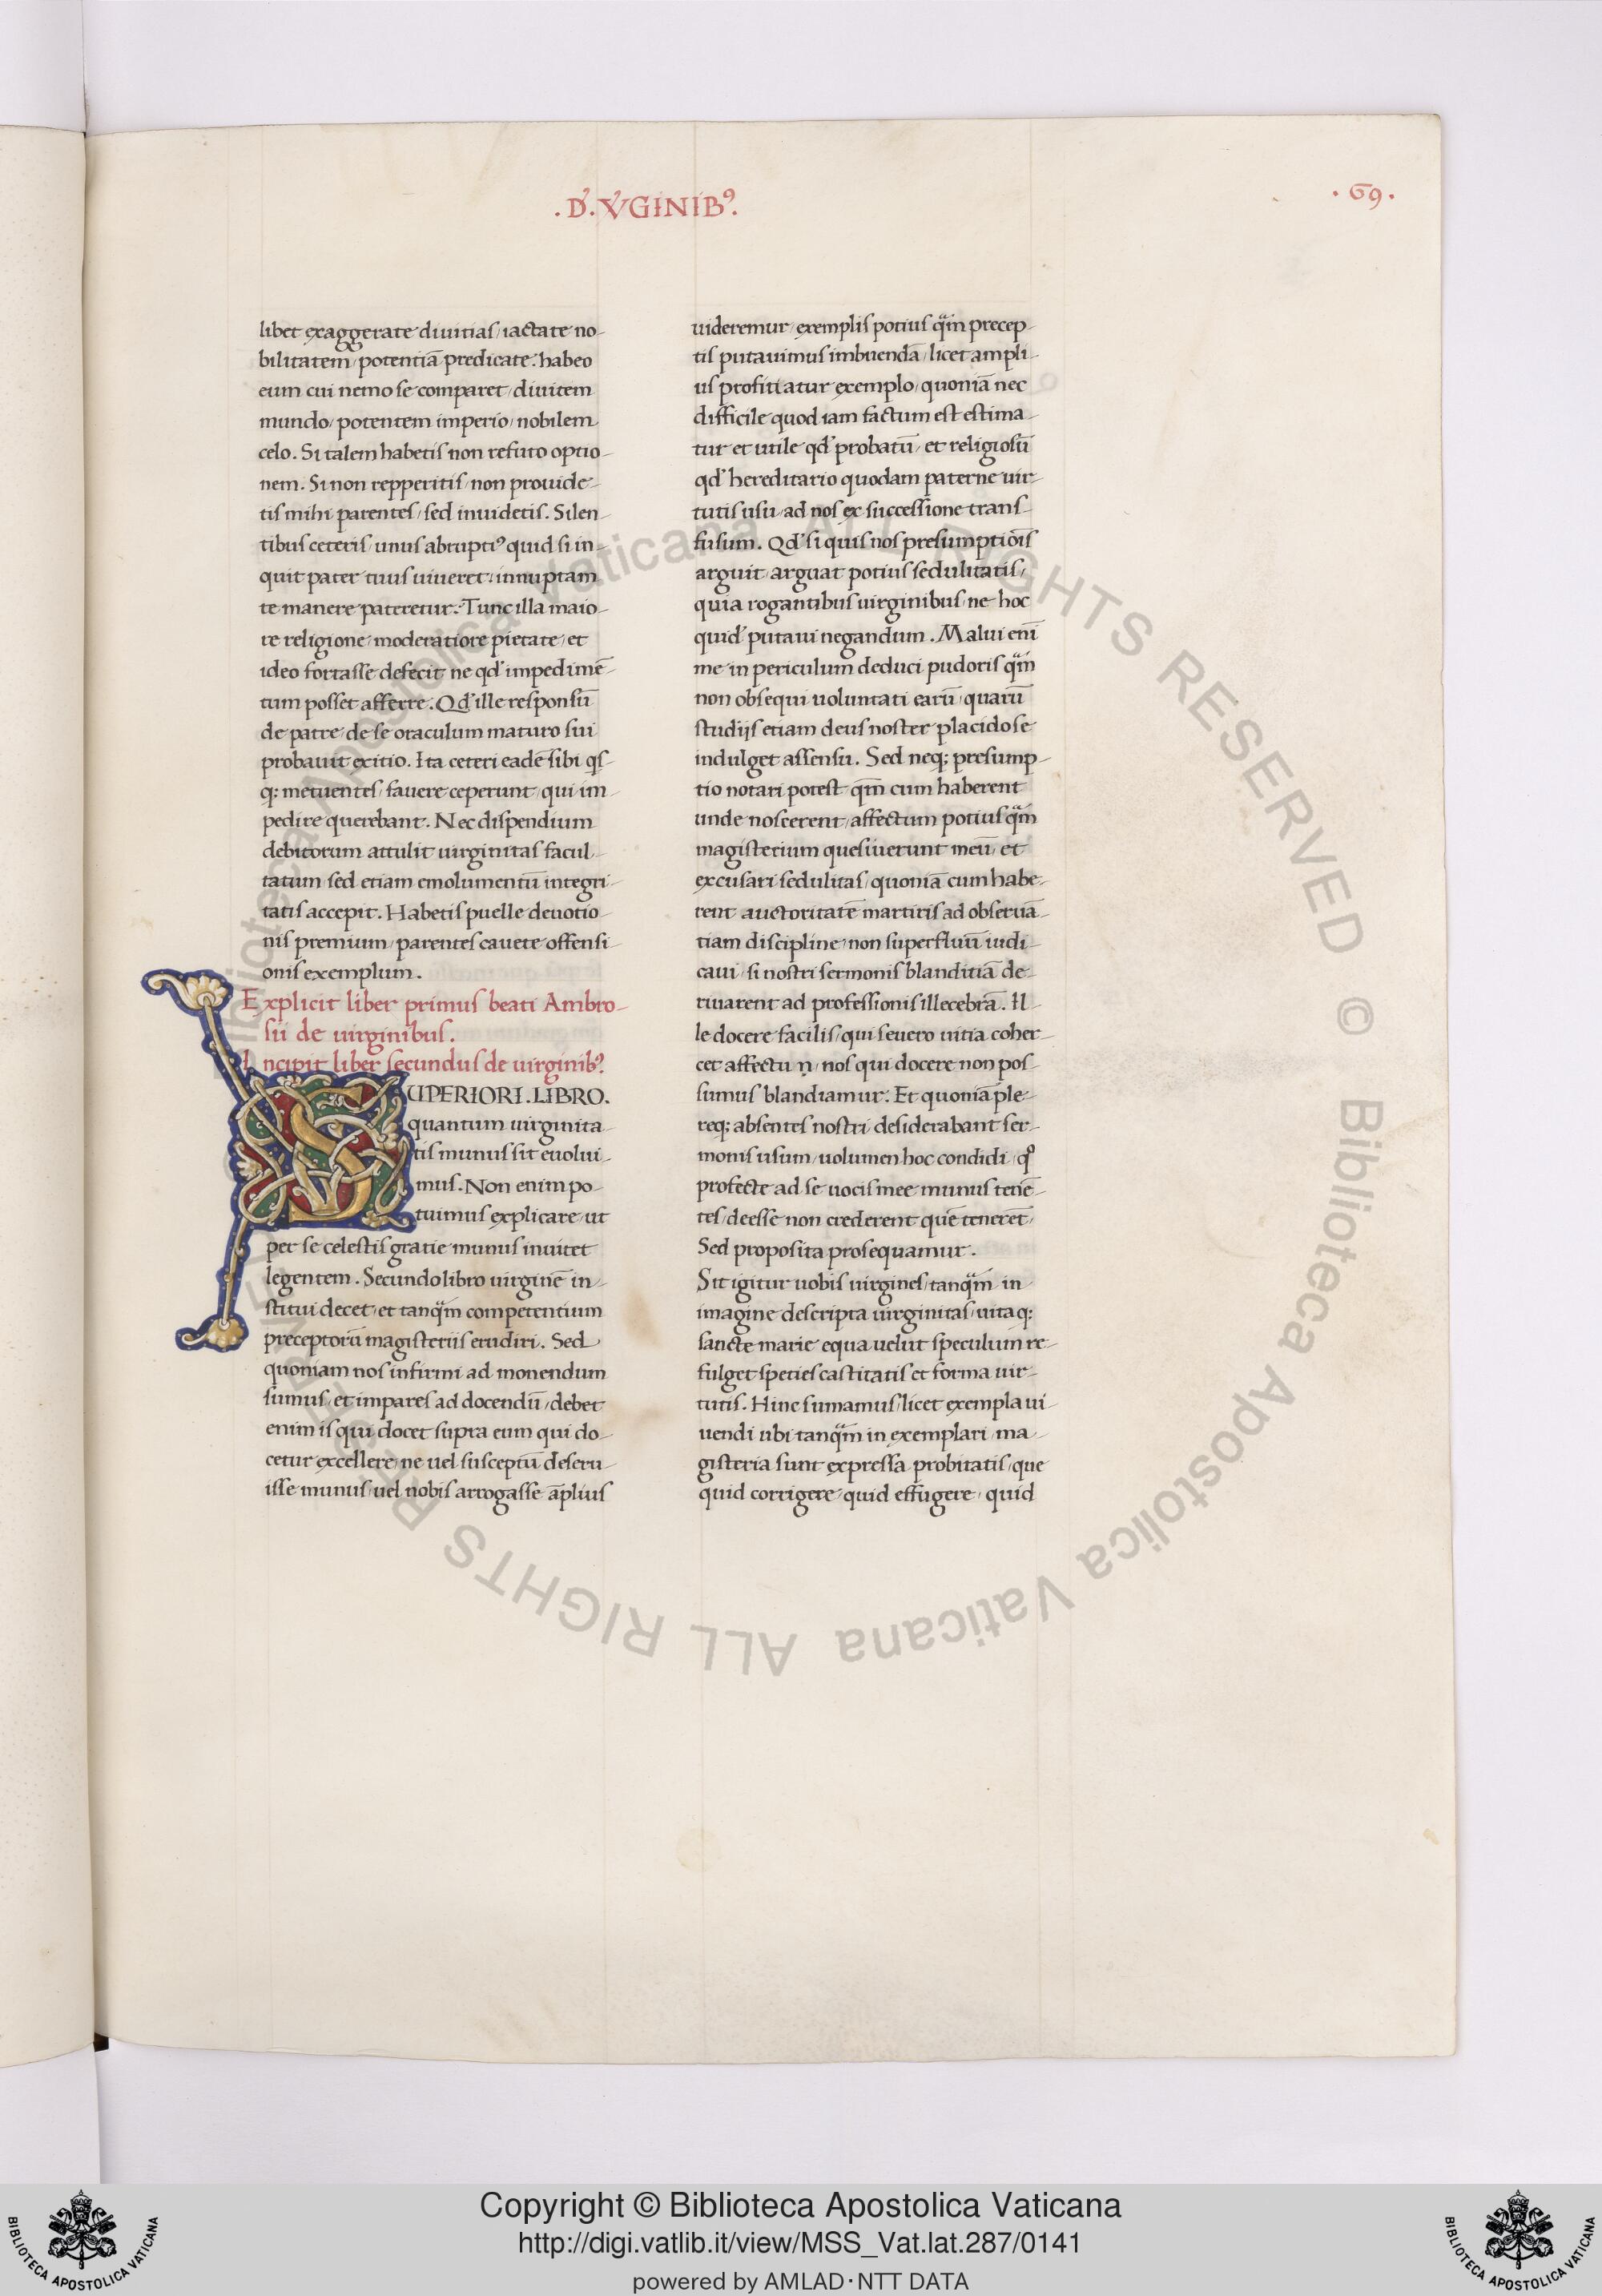 .D'. V'GINIBꝰ.
.69.
libet exaggerate diuitias/ iactate no-
bilitatem/ potentiā predicate: habeo
eum cui nemo se comparet/ diuitem
mundo/ potentem imperio/ nobilem
celo. Si talem habetis non refuto optio-
nem. Si non repperitis/ non prouide-
tis mihi parentes/ sed inuidetis. Silen-
tibus ceteris/ unus abruptiꝰ quid si in-
quit pater tuus uiueret: innuptam
te manere pateretur: Tunc illa maio-
re religione/ moderatiore pietate/ et
ideo fortasse defecit ne qd' impedimē-
tum posset afferre. Qd' ille responsū
de patre/ de se oraculum maturo sui
probauit exitio. Ita ceteri eadē sibi qs-
q; metuentes/ fauere ceperunt/ qui im-
pedire querebant. Nec dispendium
debitorum attulit uirginitas facul-
tatum/ sed etiam emolumentū integri-
tatis accepit. Habetis puelle deuotio-
nis premium/ parentes cauete offensi-
onis exemplum.
Explicit liber primus beati Ambro-
sii de uirginibus.
Incipit liber secundus de uirginibꝰ.
SUPERIORI.LIBRO.
quantum uirginita-
tis munus sit euolui-
mus. Non enim po-
tuimus explicare/ ut
per se celestis gratie munus inuitet
legentem. Secundo libro uirginē in-
stitui decet/ et tanq̄m competentium
preceptorū magisteriis erudiri. Sed
quoniam nos infirmi ad monendum
sumus/ et impares ad docendū/ debet
enim is qui docet supra eum qui do-
cetur excellere/ ne uel susceptū deseru-
isse munus/ uel nobis arrogasse āplius
uideremur/ exemplis potius q̄m precep-
tis putauimus imbuendā/ licet ampli-
us profitiatur exemplo/ quoniā nec
difficile quod iam factum est estima-
tur et utile qd' probatū/ et religiosū
qd' hereditario quodam paterne uir-
tutis usu/ ad nos ex successione trans-
fusum. Qd' si quis nos presumptiōis
arguit/ arguat potius sedulitatis/
quia rogantibus uirginibus/ ne hoc
quid' putaui negandum. Malui enī
me in periculum deduci pudoris q̄m
non obsequi uoluntati earū/ quarū
studiis etiam deus noster placido se
indulget assensu. Sed neq; presump-
tio notari potest qm̄ cum haberent
unde noscerent/ affectum potius q̄m
magisterium quesiuerunt meū/ et
excusari sedulitas/ quoniā cum habe-
rent auctoritatē martiris ad obseruā-
tiam discipline/ non superfluū iudi-
caui/ si nostri sermonis blanditiā de-
riuarent ad professionis illecebrā. Il-
le docere facilis/ qui seuero uitia coher-
cet affectu ṇ/ nos qui docere non pos-
sumus blandiamur: Et quoniā ple-
req; absentes nostri desiderabant ser-
monis usum/ uolumen hoc condidi/ qͦ
profecte ad se uocis mee munus tenē-
tes/ deesse non crederent quē tenerēt/
Sed proposita prosequamur.
Sit igitur uobis uirgines/ tanq̄m in
imagine descripta uirginitas/ uitaq;
sancte marie equa uelut speculum re-
fulget species castitatis et forma uir-
tutis. Hinc sumamus/ licet exempla ui-
uendi ubi tanq̄m in exemplari/ ma-
gisteria sunt expressa probitatis/ que
quid corrigere/ quid effugere/ quid
Biblioteca Apostolica Vaticana ALL RIGHTS RESERVED © Biblioteca Apostolica Vaticana ALL RIGHTS RESERVED
Copyright © Biblioteca Apostolica Vaticana
http://digi.vatlib.it/view/MSS_Vat.lat.287/0141
powered by AMLAD·NTT DATA
BIBLIOTECA APOSTOLICA VATICANA
BIBLIOTECA APOSTOLICA VATICANA